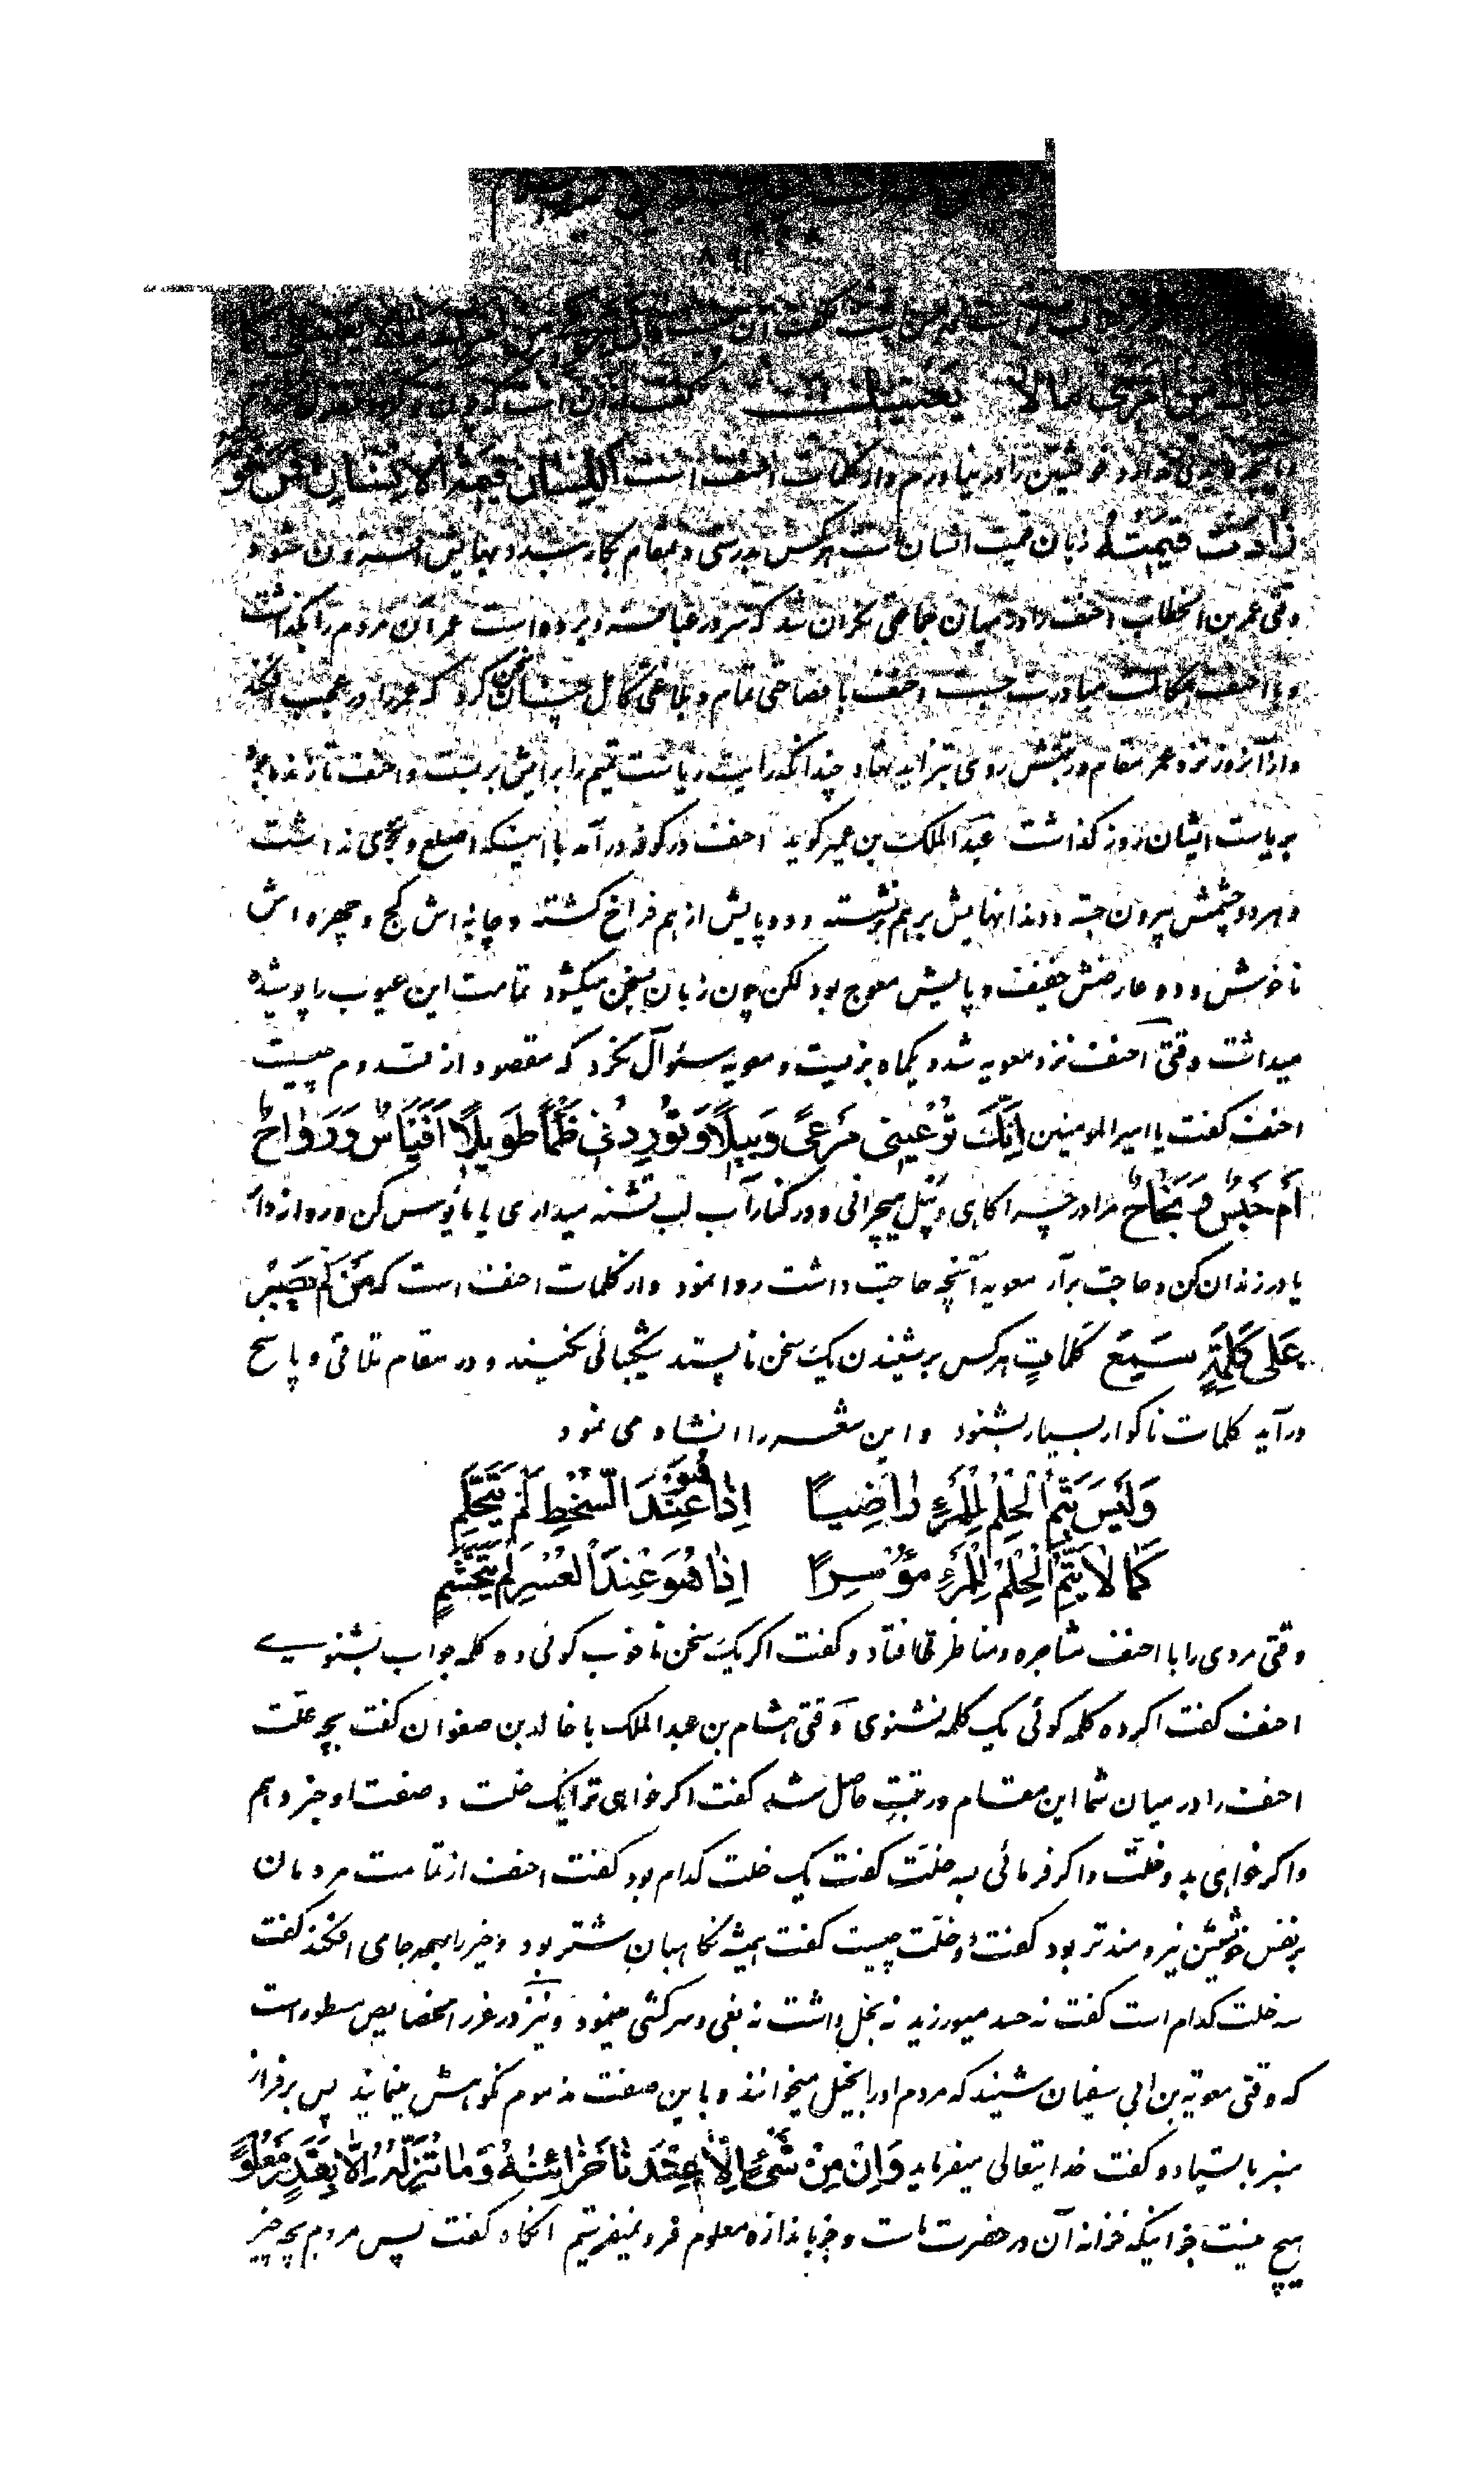 مالك من امری ما لا یعنیك
خویشتن را در نیاورم و از کلمات احنف است اَللِّسانُ قیمَةُ الْاِنْسانِ فَمَنْ قَوَّمَهُ
زادَتْ قیمَتُهُ زبان قیمت انسان است هر کس بدرستی و بمقام بکار بندد بهایش افزون شود
وقتی عمر بن الخطاب احنف را در میان جماعتی نکران شد که سر در عبا فرو برده است عمر آن مردم را بگذاشت
و با احنف بمکالمت مبادرت جست احنف با فصاحتی تمام و بلاغتی کامل چنان سخن کرد که عمر را در عجب افکند
و از آنروز نزد عمر مقام و رتبتش روی بتزاید نهاد چندانکه رایت ریاست تمیم را برایش بربست و احنف تا زنده بود
بریاست ایشان روز کذاشت عبد الملک بن عمیر کوید احنف در کوفه در آمد با اینکه اصلع و
و هر دو چشمش بیرون جسته و دندانهایش بر هم برنشسته و دو پایش از هم فراخ کشته و چانه اش کج و چهره اش
ناخوش و دو عارضش خفیف و پایش معوج بود لکن چون زبان بسخن میکشود تمامت این عیوب را پوشیده
میداشت وقتی احنف نزد معویه شد و یکماه بزیست و معویه سئوآل نکرد که مقصود از قدوم چیست
احنف کفت یا امیر المومنین اِنَّكَ تُرْعینی مَرْعیً وَبیلاً وَ تُورِدُنی ظَمْأً طَویلاً اَفَیَاسٌ وَ رَواحٌ
اَمْ حَبْسٌ وَ نَجاحٌ مرا در چراکاهی وبیل میچرانی و در کنار آب لب تشنه میداری یا مایوس کن و روانه دار
یا در زندان کن و حاجت برآر معویه آنچه حاجت داشت روا نمود و از کلمات احنف است که مَنْ لَمْ یَصْبِرْ
عَلی کَلِمَةٍ سَمِعَ کَلِماتٍ هر کس بر شنیدن یک سخن ناپسند شکیبائی نکیرد و در مقام تلافی و پاسخ
در آید کلمات ناکوار بسیار بشنود و این شعر را انشاد می نمود
وَلَیْسَ یَتِمُّ الْحِلْمُ لِلْمَرْءِ راضِیاً    اِذا هُوَ عِنْدَ السُّخْطِ لَمْ یَتَحَلَّمِ
کَما لا یَتِمُّ الْحِلْمُ لِلْمَرْءِ مُؤْسِراً    اِذا هُوَ عِنْدَ الْعُسْرِ لَمْ یَتَحَشَّمِ
وقتی مردی را با احنف مشاجره و مناظرتی افتاد و کفت اکر یک سخن ناخوب کوئی ده کلمه جواب بشنوی
احنف کفت اکر ده کلمه کوئی یک کلمه نشنوی وقتی هشام بن عبد الملک با خالد بن صفوان کفت بچه علّت
احنف را در میان شما این مقام و رتبت حاصل شد کفت اکر خواهی ترا بیک خلت و صفت او خبر دهم
و اکر خواهی بدو خلّت و اکر فرمائی بسه خلّت کفت یک خلت کدام بود کفت احنف از تمامت مردمان
بر نفس خویشتن نیرومندتر بود کفت دو خلّت چیست کفت همیشه نکاهبان شتر بود و خیر را بهمه جا می افکند کفت
سه خلت کدام است کفت نه حسد میورزید نه بخل داشت نه بغی و سرکشی مینمود و نیز در غرر الخصایص مسطور است
که وقتی معویة بن ابی سفیان شنید که مردم او را بخیل میخوانند و باین صفت مذموم نکوهش مینمایند پس بر فراز
منبر بایستاد و کفت خدایتعالی میفرماید وَ اِنْ مِنْ شَیْءٍ اِلّا عِنْدَنا خَزائِنُهُ وَ ما نُنَزِّلُهُ اِلّا بِقَدَرٍ مَعْلُومٍ
هیچ چیز نیست جز اینکه خزانه آن در حضرت ماست و جز باندازه معلوم فرو نمیفرستیم آنکاه کفت پس مردم بچه چیز